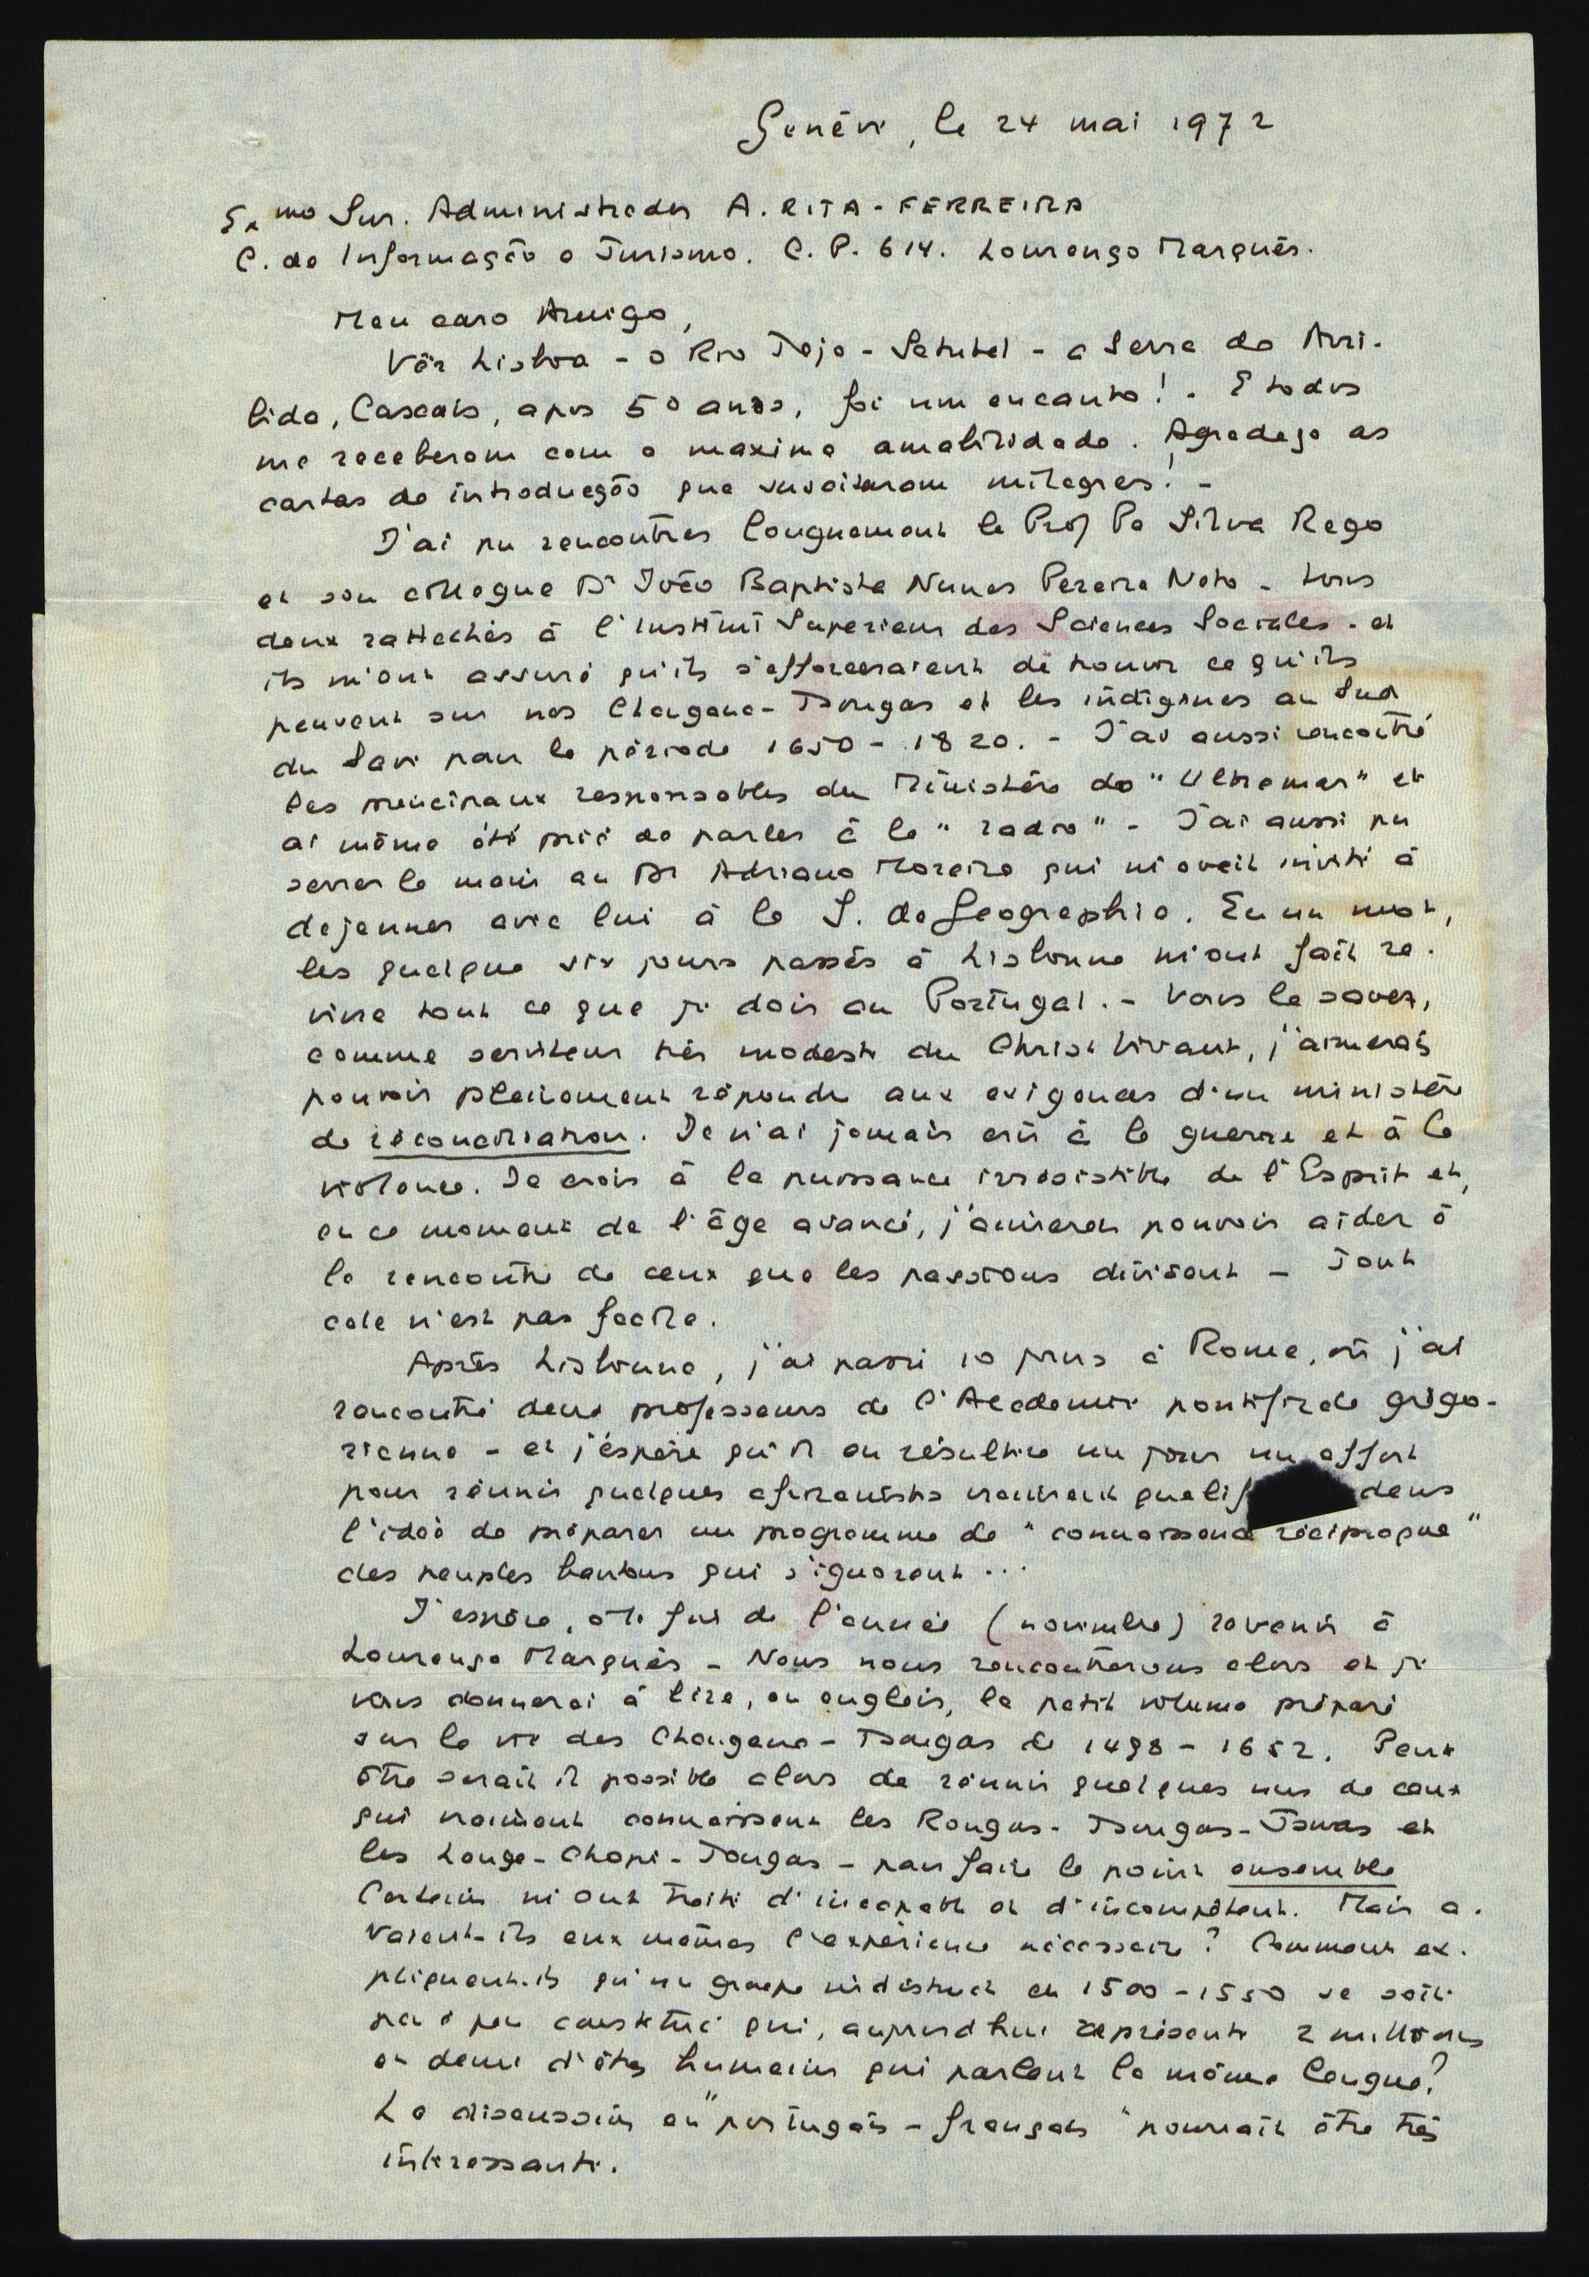 Genève, le 24 mai 1972
Exmo Snr. Administrador A. RITA-FERREIRA
C. de Informação e Turismo. C. P. 614. Lourenço Marquès.
Meu caro Amigo,
Vêr Lisboa - o Rio Tejo - Setubal - a Serra da Arri-
bida, Cascais, apos 50 anos, foi um encanto! - E todos
me receberam com a maxima amabilidade. Agradeço as
cartas de introducção que suscitaram milagres! -
J'ai pu rencontrer longuement le Prof Pe Silva Rego
et son collegue Dr João Baptista Nunes Pereira Neto - tous
deux rattachés à l'Institut Superieur des Sciences Sociales - et
ils m'ont assuré qu'ils s'efforceraient de trouver ce qu'ils
peuvent sur nos Changana-Tsongas et les indigènes au Sud
du Save pour la période 1650 - 1820. - J'ai aussi rencontré
les principaux responsables du Ministère do "Ultramar" et
ai même été prié de parler à la "radio" - J'ai aussi pu
serrer la main au Dr Adriano Moreira qui m'avait invité à
dejeuner avec lui à la S. de Geographia. En un mot,
les quelque six jours passés à Lisbonne m'ont fait re-
vivre tout ce que je dois au Portugal. - Vous le savez,
comme serviteur très modeste du Christ Vivant, j'aimerais
pouvoir pleinement répondre aux exigences d'un ministère
de réconciliation. Je n'ai jamais crû à la guerre et à la
violence. Je crois à la puissance irrésistible de l'Esprit et,
en ce moment de l'âge avancé, j'aimerais pouvoir aider à
la rencontre de ceux que les passions divisent - Tout
cela n'est pas facile.
Après Lisbonne, j'ai passé 10 jours à Rome, où j'ai
rencontré deux professeurs de l'Academie pontificale grégo-
rienne - et j'espère qu'il en résultera un jour un effort
pour réunir quelques africanistes vraiment qualif dans
l'idée de préparer un programme de "connaissance réciproque"
des peuples bantous qui s'ignorent...
J'espère, à la fin de l'année (novembre) revenir à
Lourenço Marquès - Nous nous rencontrerons alors et je
vous donnerai à lire, en anglais, le petit volume préparé
sur la vie des Changana-Tsongas de 1498 - 1652. Peut
être serait il possible alors de réunir quelques uns de ceux
qui vraiment connaissent les Rongas-Tsongas-Tswas et
les Lenge-Chopi-Tongas - pour faire le point ensemble
Certains m'ont traité d'incapable et d'incompétent. Mais a-
vaient-ils eux mêmes l'expérience nécessaire? Comment ex-
pliquent-ils qu'un groupe indistinct en 1500 - 1550 se soit
peu à peu constitué qui, aujourd'hui représente 2 millions
et demi d'êtres humains qui parlent la même langue?
La discussion en "portugais - français" pourrait être très
intéressante.